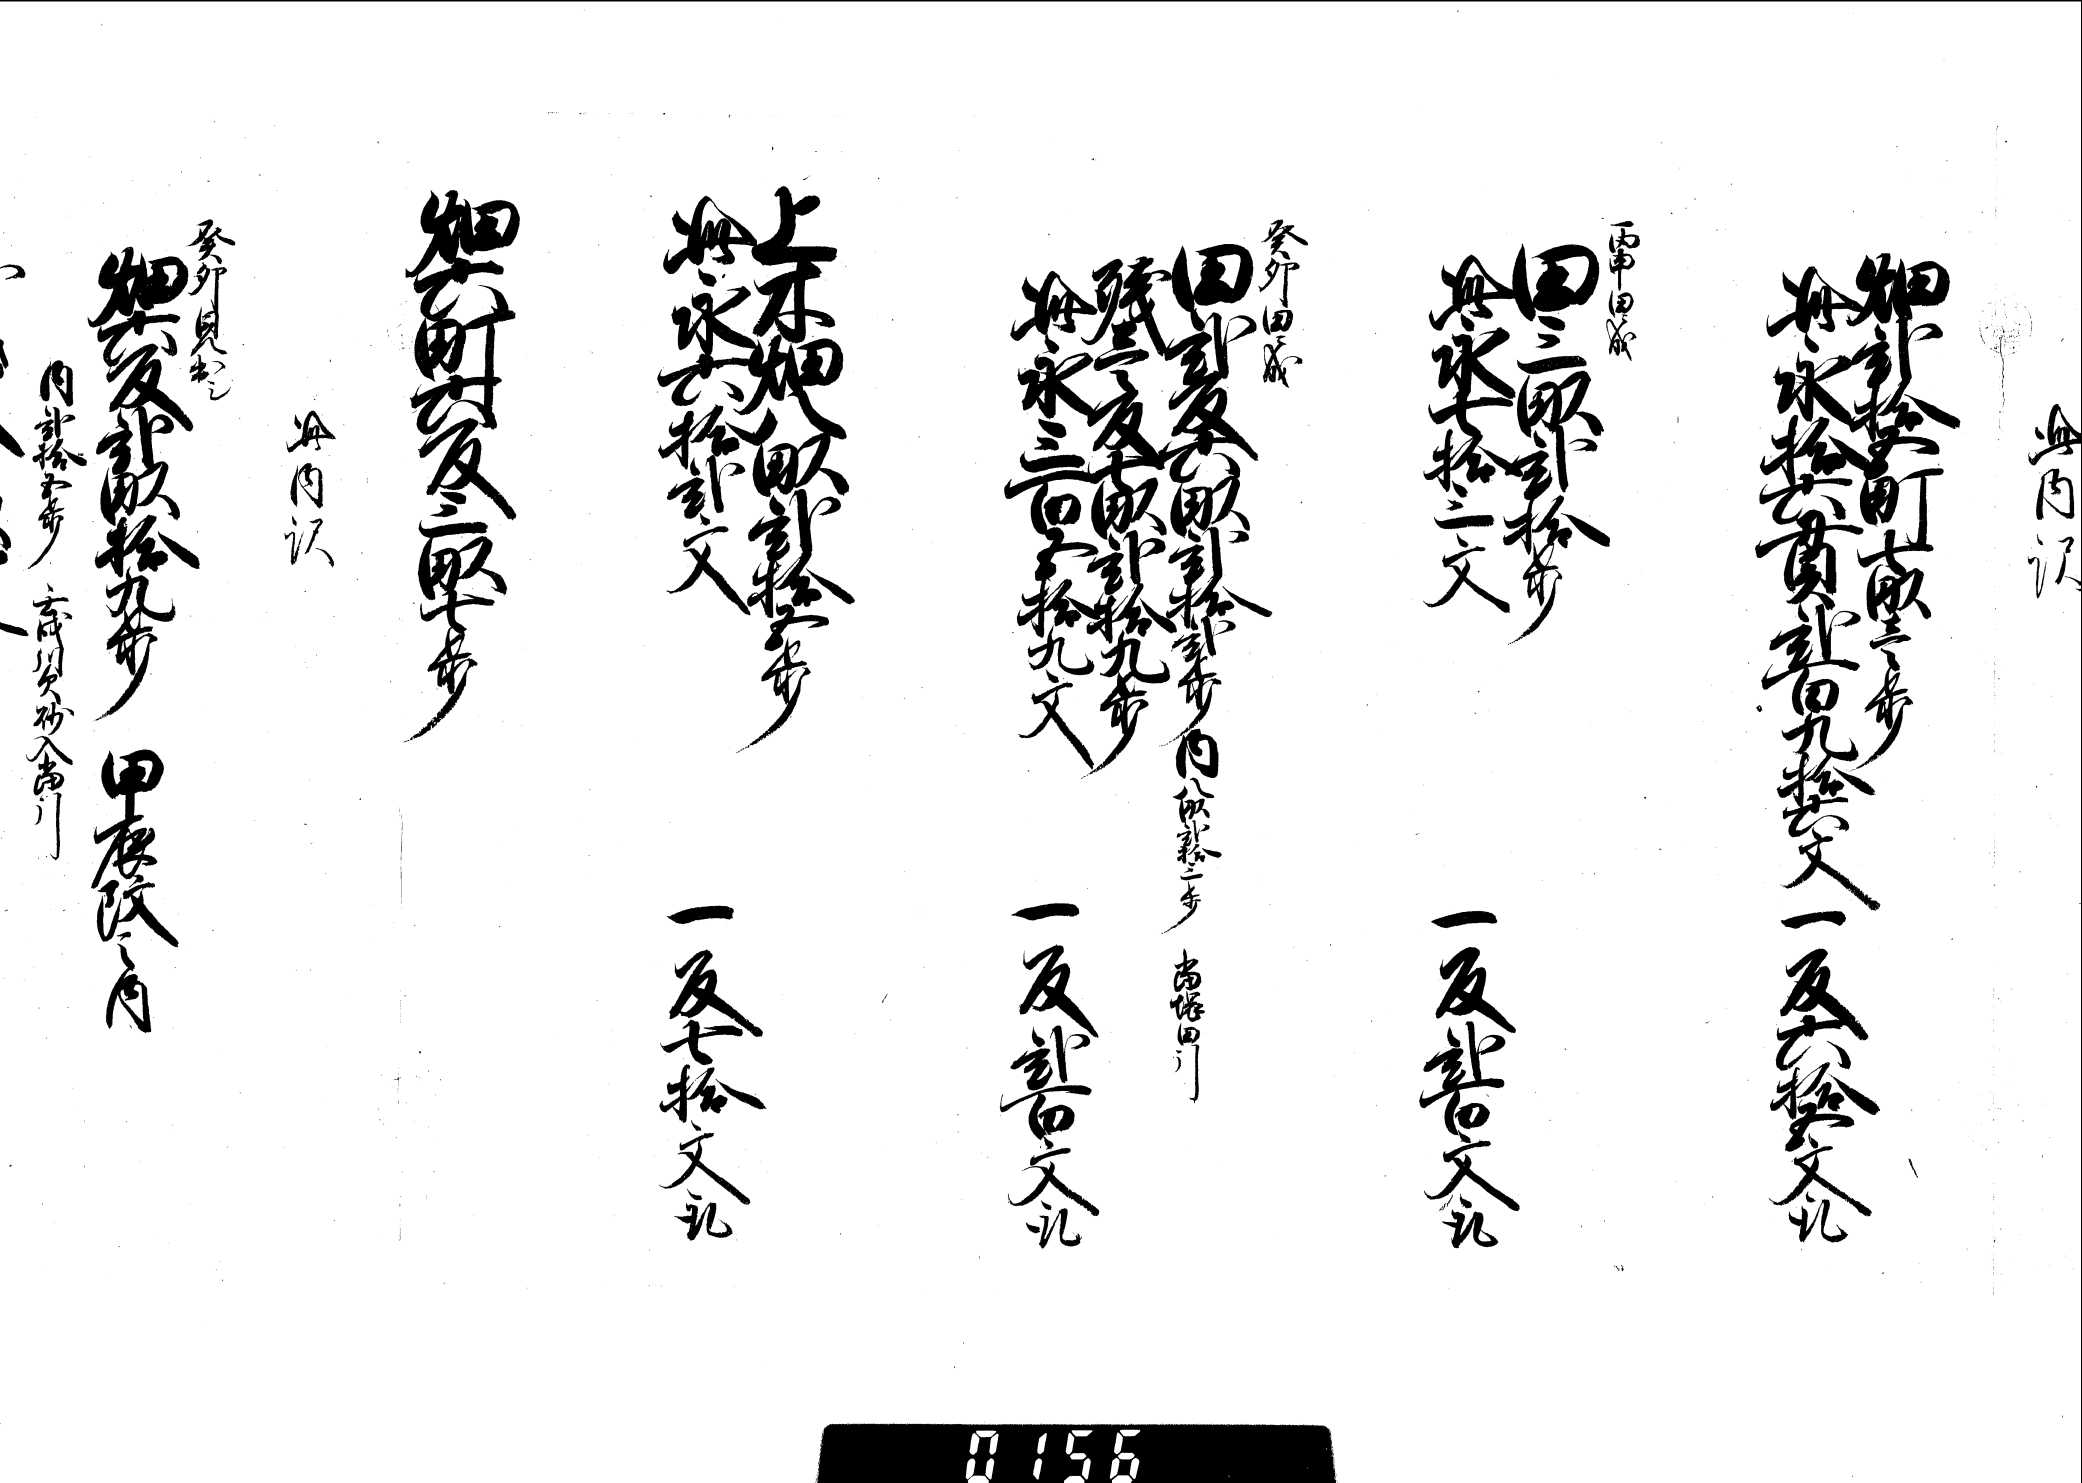 此内訳
畑弐拾五町七畝三歩
此永拾六貫弐百九拾六文 一反六拾五文記
丙申田成
田三畝弐拾歩
此永七拾三文 一反弐百文記
癸卯田成
田弐反六畝弐拾弐歩 内八畝弐拾三歩 当堀田引
残壱反七畝弐拾九歩
此永三百五拾九文 一反弐百文記
上木畑八畝弐拾五歩
此永六拾弐文 一反七拾文記
畑六町六反三畝七歩
此内訳
癸卯見出
畑六反弐畝拾九歩 甲辰改之内
内弐拾五歩 川欠砂入当引
0156